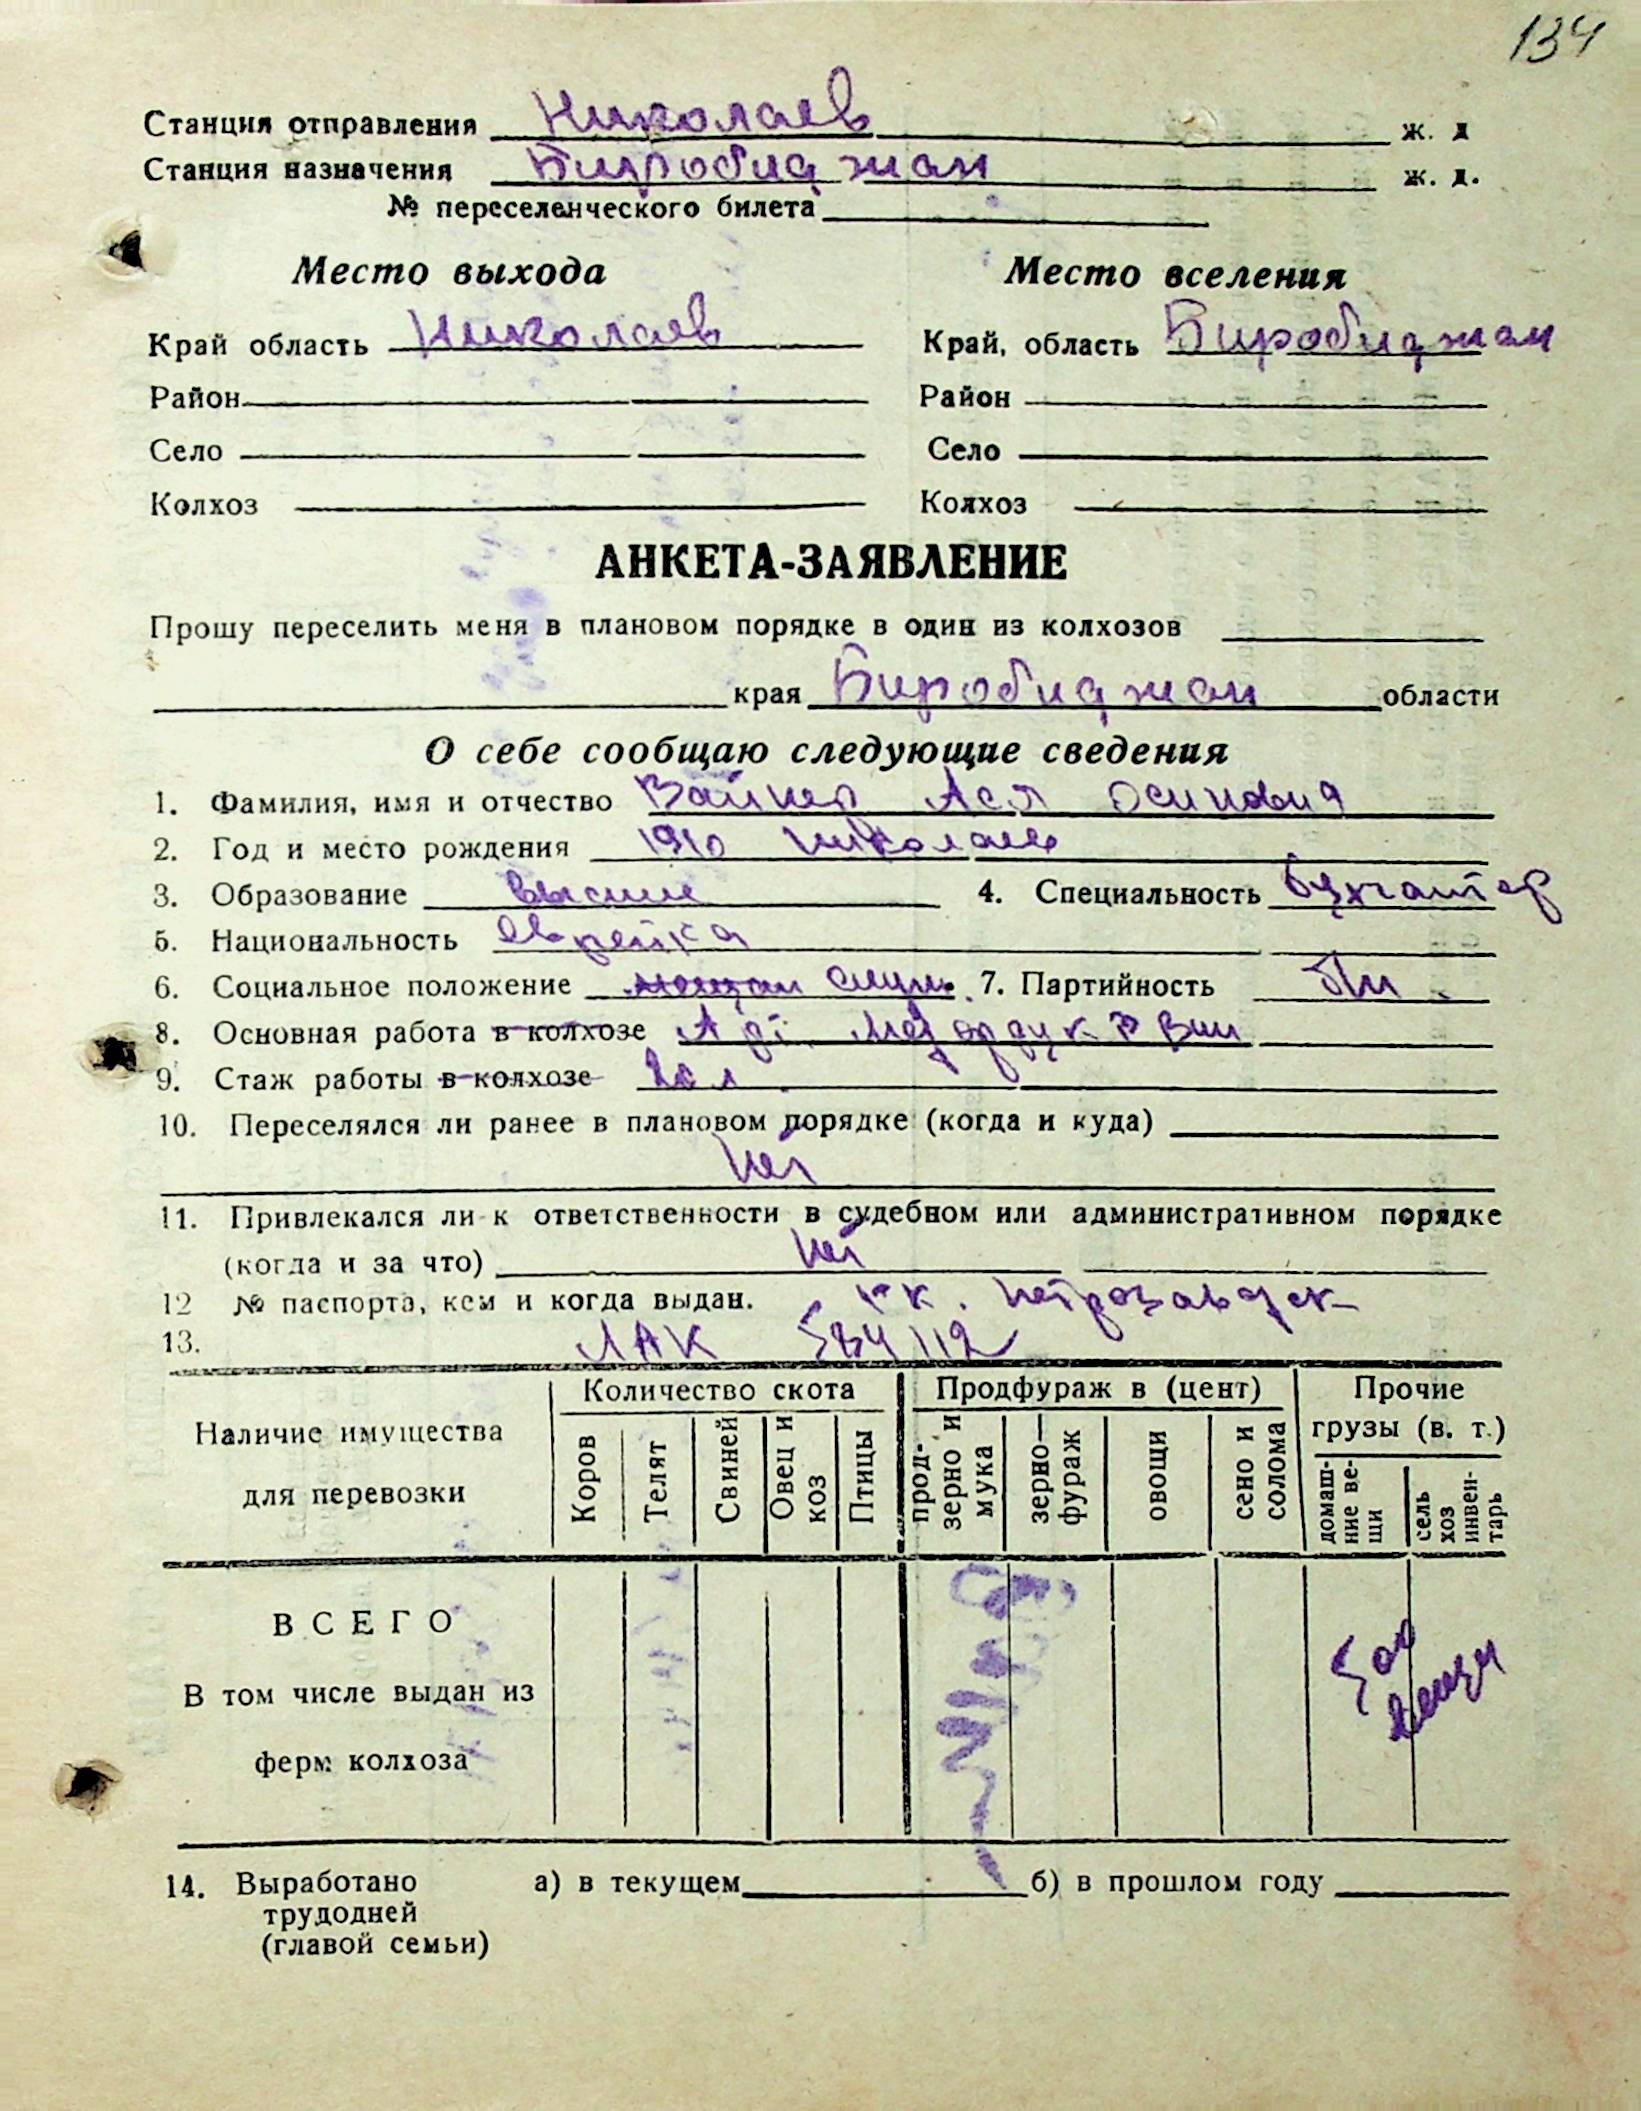 134
Станция отправления Николаев ж. д
Станция назначения Биробиджан ж. д.
№ переселенческого билета
Место выхода Место вселения
Край область Николаев Край, область Биробиджан
Район Район
Село Село
Колхоз Колхоз
АНКЕТА-ЗАЯВЛЕНИЕ
Прошу переселить меня в плановом порядке в один из колхозов
края Биробиджан области
О себе сообщаю следующие сведения
1. Фамилия, имя и отчество Вайнер Ася Осиповна
2. Год и место рождения 1910 Николаев
3. Образование высшее 4. Специальность бухгалтер
5. Национальность еврейка
6. Социальное положение служ. 7. Партийность б/п
8. Основная работа в колхозе
9. Стаж работы в колхозе
10. Переселялся ли ранее в плановом порядке (когда и куда)
Нет
11. Привлекался ли к ответственности в судебном или административном порядке
(когда и за что) Нет
12 № паспорта, кем и когда выдан. Петрозаводск
13. 584112
Наличие имущества для перевозки
Количество скота
Коров Телят Свиней Овец и коз Птицы
Продфураж в (цент)
прод-зерно и мука зерно-фураж овощи сено и солома
Прочие грузы (в. т.)
домаш-ние ве-щи сель хоз инвен-тарь
ВСЕГО
В том числе выдан из
ферм колхоза
вещи
14. Выработано а) в текущем б) в прошлом году
трудодней
(главой семьи)